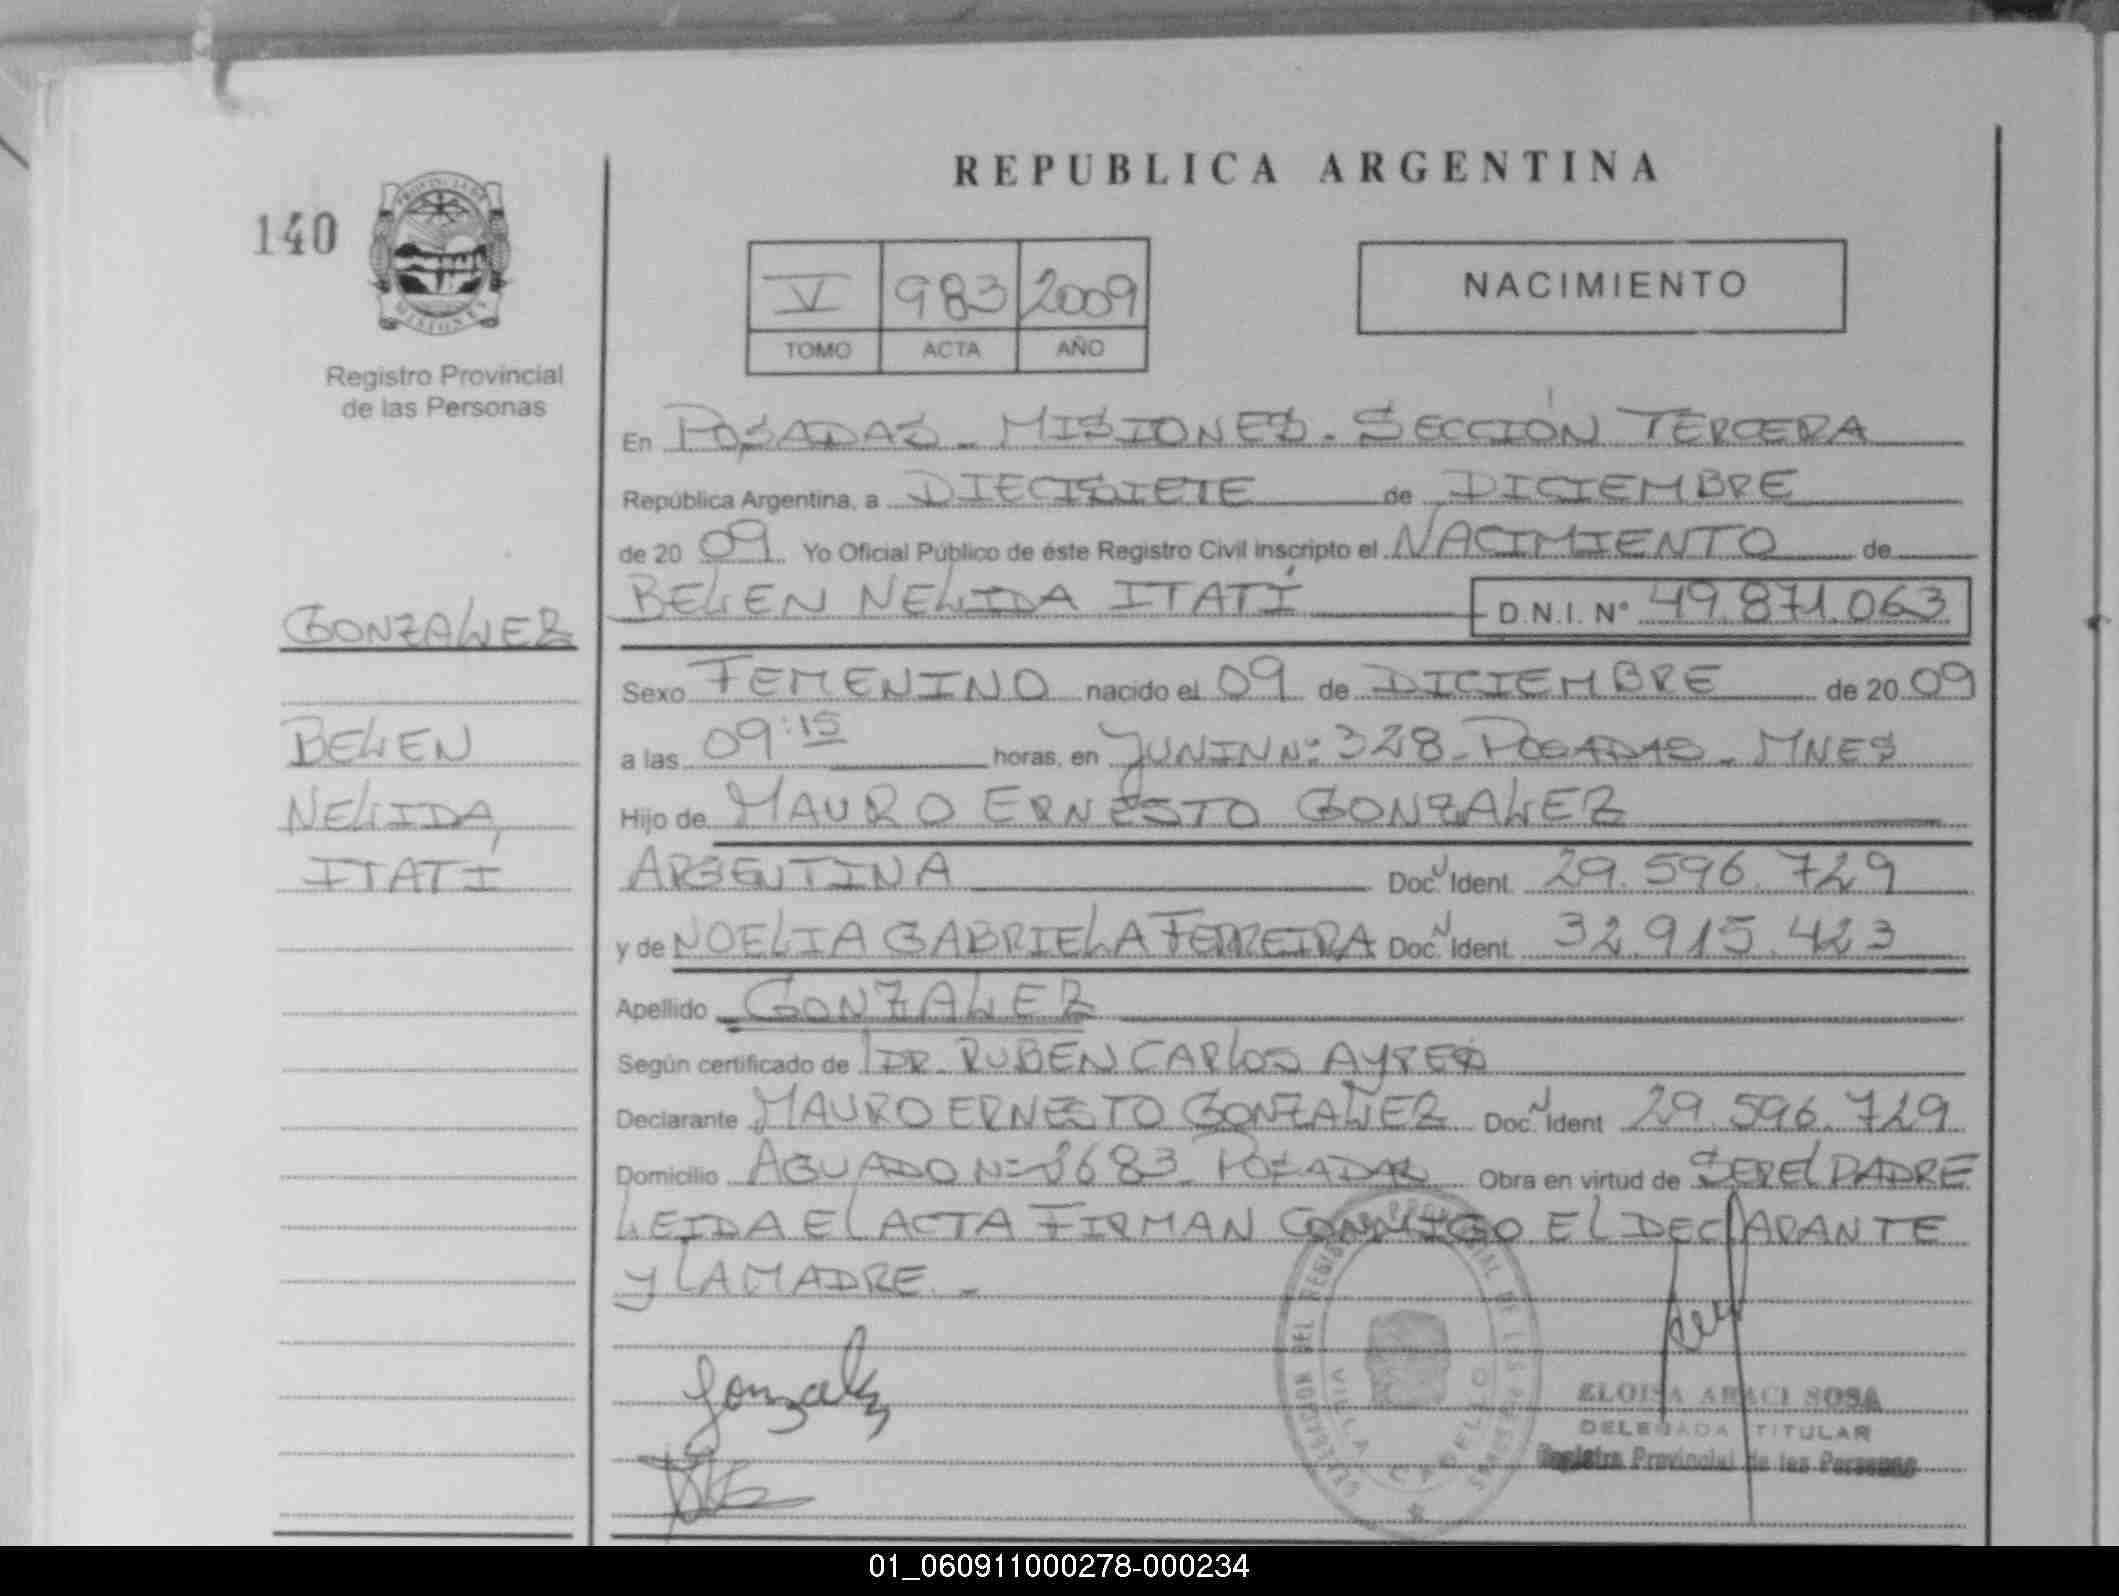 REPUBLICA ARGENTINA
140
PROVINCIA DE
MISIONES
Registro Provincial
de las Personas
V 983 2009
TOMO ACTA AÑO
NACIMIENTO
En POSADAS - MISIONES - SECCIÓN TERCERA
República Argentina, a DIECISIETE de DICIEMBRE
de 20 09 Yo Oficial Público de éste Registro Civil inscripto el NACIMIENTO de
BELEN NELIDA ITATÍ D.N.I. N° 49.871.063
GONZALEZ
BELEN
NELIDA,
ITATÍ
Sexo FEMENINO nacido el 09 de DICIEMBRE de 20 09
a las 09:15 horas, en JUNIN N°: 328 - POSADAS - MNES
Hijo de MAURO ERNESTO GONZALEZ
ARGENTINA Doc. Ident. 29.596.729
y de NOELIA GABRIELA FERREIRA Doc. Ident. 32.915.423
Apellido GONZALEZ
Según certificado de DR. RUBEN CARLOS AYRES
Declarante MAURO ERNESTO GONZALEZ Doc. Ident 29.596.729
Domicilio AGUADO N= POSADAS Obra en virtud de SER EL PADRE
LEIDA EL ACTA FIRMAN CONMIGO EL DECLARANTE
Y LA MADRE. -
Gonzalez
DELEGACION DEL REGISTRO PROVINCIAL DE LAS PERSONAS
VILLA CABELLO
ELOISA ARACI SOSA
DELEGADA TITULAR
Registro Provincial de las Personas
01_060911000278-000234